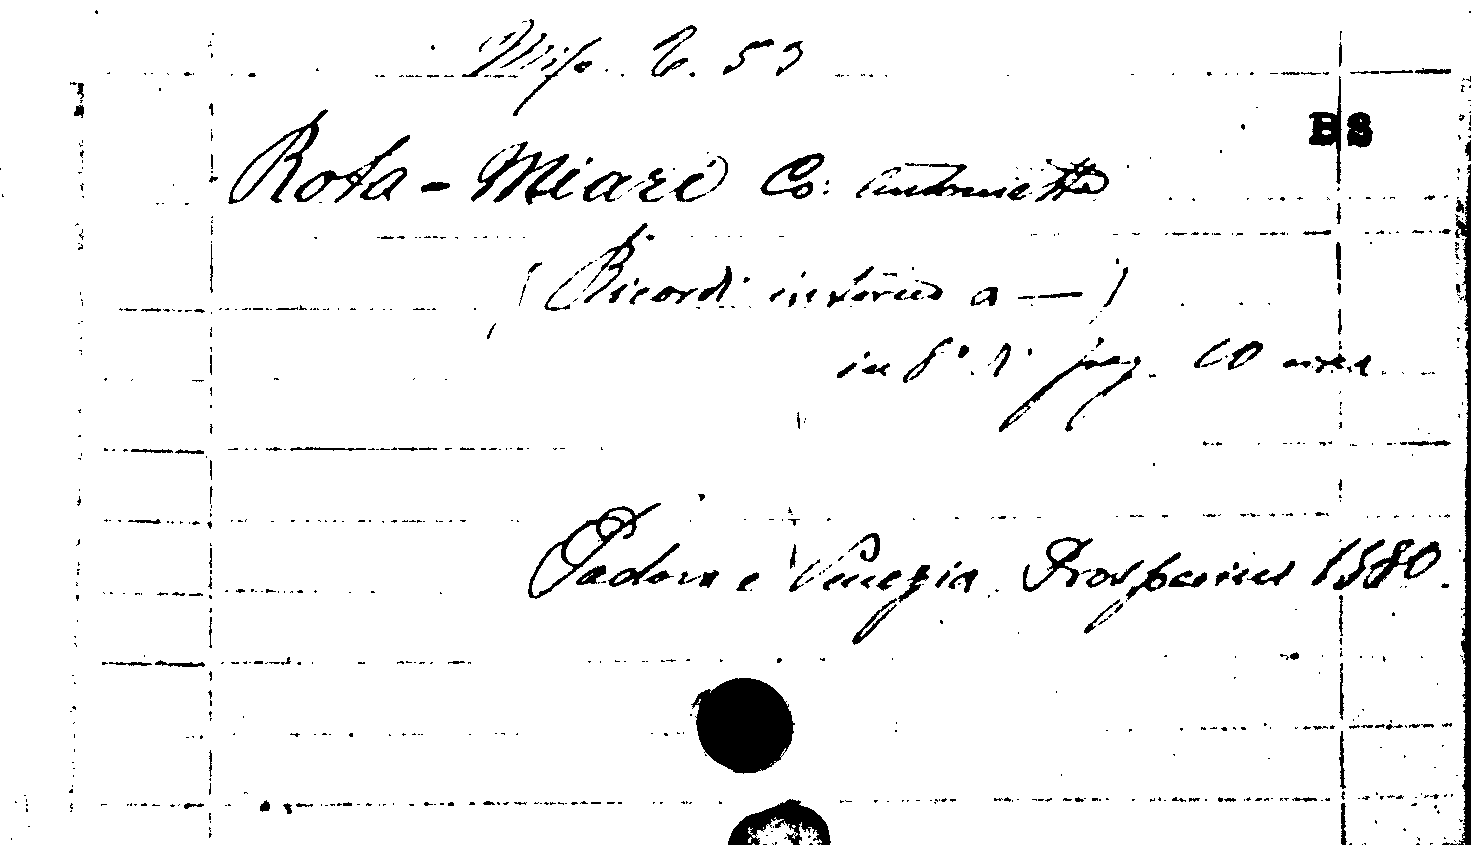 Misc. B. 53
BS
Rota - Miari Co: Antonietta
(Ricordi intorno a — )
in 8° p. pag. 60 circa
Padova e Venezia Prosperini 1880.